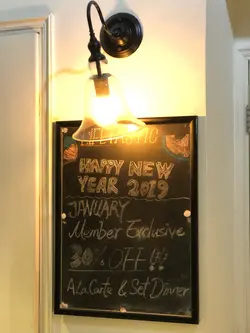 LIFETASTIC
HAPPY NEW
YEAR 2019
JANUARY
Member Exclusive
30% OFF!!
A La Carte & Set Dinner